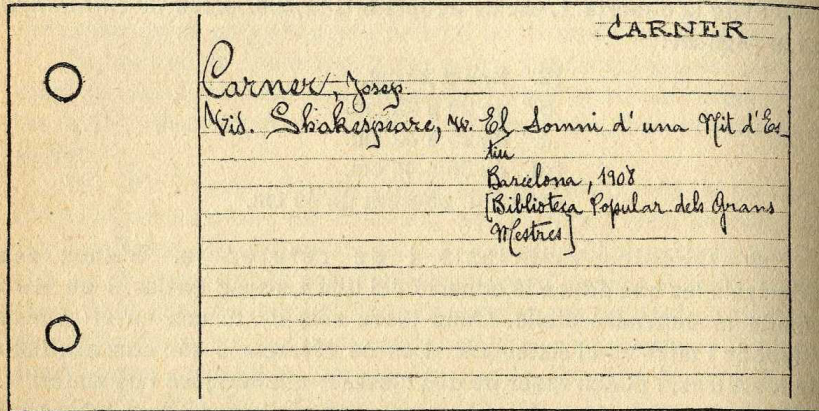 CARNER
Carner, Josep.
Vid. Shakespeare, W. El Somni d'una Nit d'Es-
tiu
Barcelona, 1908
[Biblioteca Popular dels Grans
Mestres]